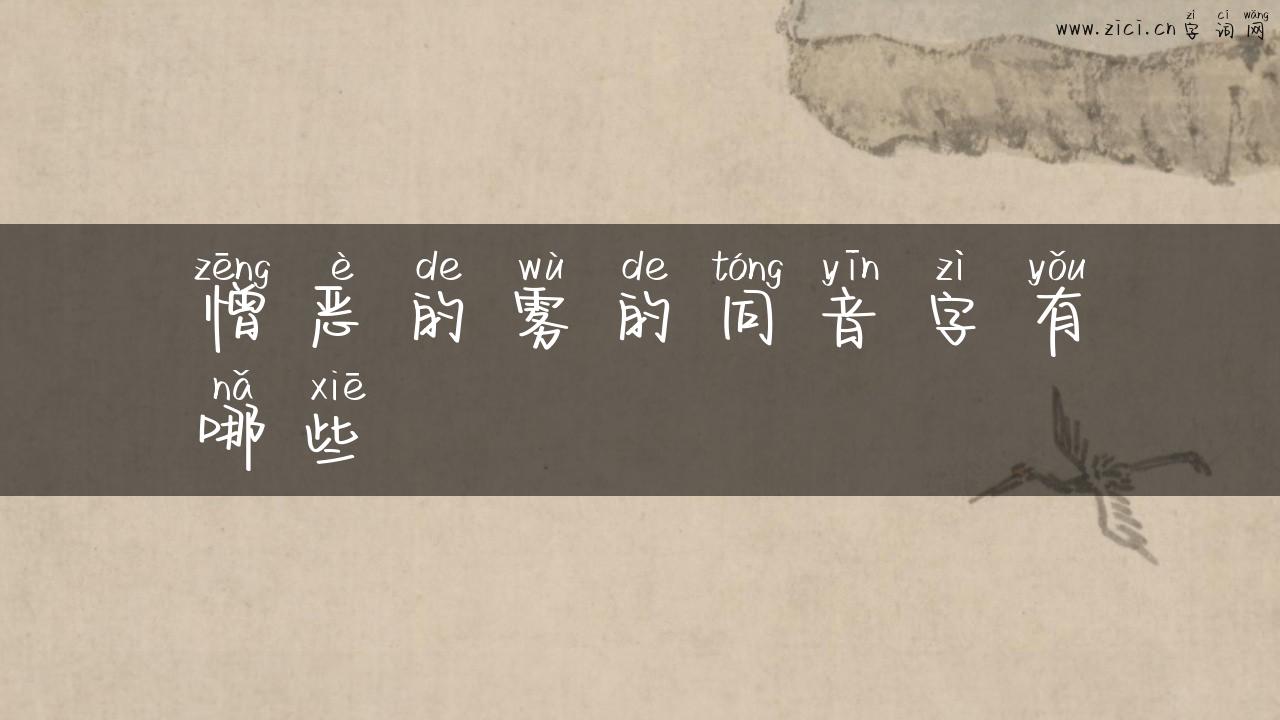 zì cí wǎng
www.zici.cn 字 词 网
zēng è de wù de tóng yīn zì yǒu
憎 恶 的 雾 的 同 音 字 有
nǎ xiē
哪 些